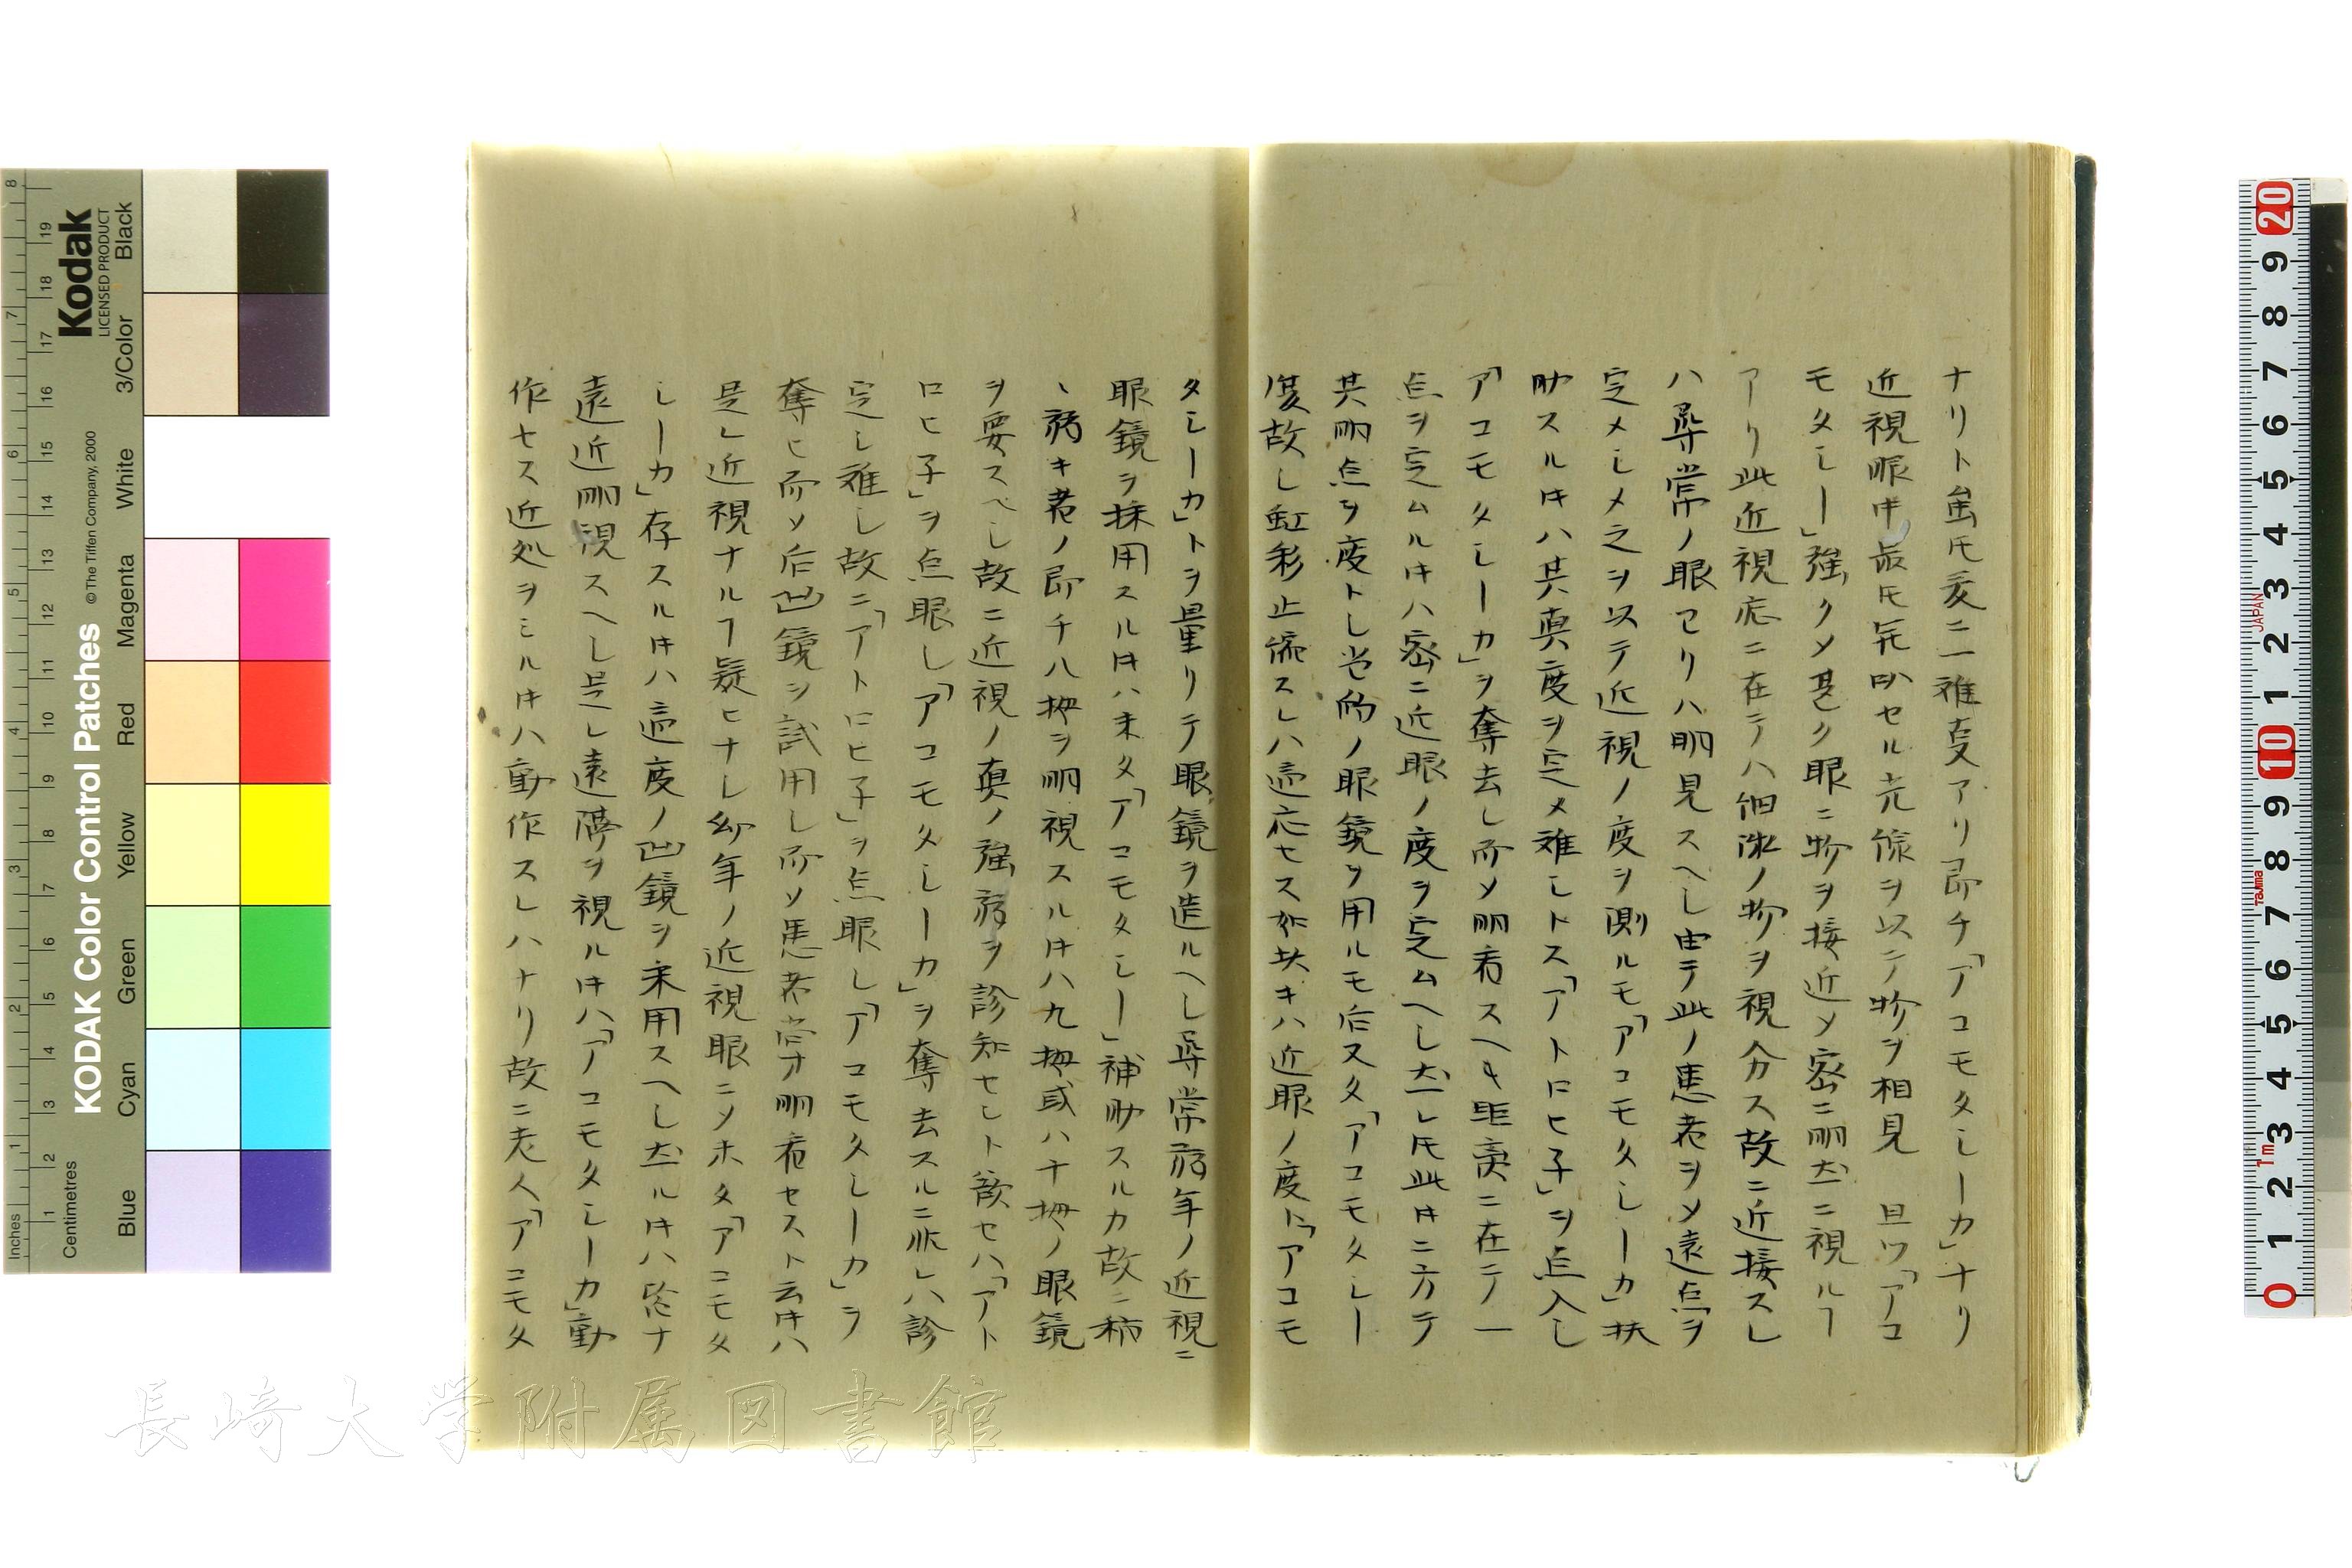 ナリト虽𪜈爰ニ一難事アリ即チ「アコモタシーカ」ナリ
近視眼中最𪜈
光線ヲ以テ物ヲ相見 且ツ「アコ
モタシー」強クメ甚ク眼ニ物ヲ接近メ密ニ明
ニ視ルヿ
アリ此近視
ニ在テハ細
ノ物ヲ視分ス故ニ近接スレ
ハ尋常ノ眼ヨリハ明見スヘシ由テ此ノ患者ヲメ遠点ヲ
定メシメ之ヲ以テ近視ノ度ヲ測ルモ「アコモタシーカ」扶
助スル𪜀ハ其真度ヲ定メ難シトス「アトロヒ子」ヲ点入シ
「アコモタシーカ」ヲ奪去シ而メ明看スヘキ距
ニ在テ一
点ヲ定ムル𪜀ハ密ニ近眼ノ度ヲ定ムヘシ
𪜈此𪜀ニ方テ
其明点ヲ度トシ
ノ眼鏡ヲ用ルモ后又タ「アコモタシー
度故シ虹彩
スレハ適応セス如
キハ近眼ノ度ト「アコモ
タシーカ」トヲ量リテ眼鏡ヲ造ルヘシ尋常弱年ノ近視ニ
眼鏡ヲ採用スル𪜀ハ未タ「アコモタシー」補助スルカ故ニ稍
々弱キ者ノ即チ八拇ヲ明視スル𪜀ハ九拇或ハ十拇ノ眼鏡
ヲ要スヘシ故ニ近視ノ真ノ強弱ヲ診知セント欲セハ「アト
ロヒ子」ヲ点眼シ「アコモタシーカ」ヲ奪去スルニ非レハ診
定シ難シ故ニ「アトロヒ子」ヲ点眼シ「アコモタシーカ」ヲ
奪ヒ而メ后凹鏡ヲ試用シ而メ患者
明看セスト云𪜀ハ
是レ近視ナルヿ疑ヒナシ幼年ノ近視眼ニメ未タ「アコモタ
シーカ」存スル𪜀ハ適度ノ凹鏡ヲ采用スヘシ
ル𪜀ハ
ナ
遠近明視スヘシ是レ遠隔ヲ視ル𪜀ハ「アコモタシーカ」動
作セス近処ヲミル𪜀ハ動作スレハナリ故ニ老人「アコモタ
Kodak
LICENSED PRODUCT
KODAK Color Control Patches
© The Tiffen Company, 2000
Inches
Centimetres
Blue Cyan Green Yellow Red Magenta White 3/Color Black
JAPAN
Tajima
長崎大学附属図書館